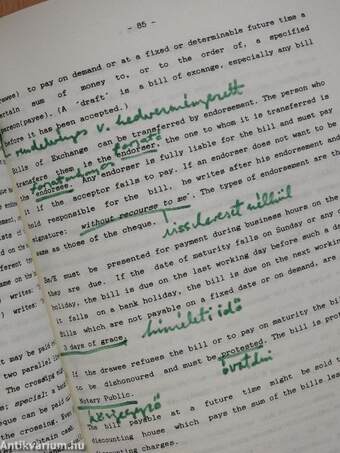 - 85 -
rawee) to pay on demand or at a fixed or determinable future time a
ertain sum of money to, or to the order of, a specified
person(payee). (A 'draft' is a bill of excange, especially any bill
efore it has been accepted.)
rendelvényes v. kedvezményezett
Bills of Exchange can be transferred by endorsement. The person who
forgató
transfers then is the endorser, the one to whom it is transferred is
forgatmányos
the endorsee. Any endorser is fully liable for the bill and must pay
it if the acceptor fails to pay. If an endorser does not want to be
held responsible for the bill, he writes after his endorsement and
signature: without recourse to me. The types of endorsement are the
same as those of the cheque.
visszkereset nélkül
Bs/E must be presented for payment during business hours on the
they are due. If the date of maturity falls on Sunday or any
holiday, the bill is due on the last working day before such a
it falls on a bank holiday, the bill is due on the next working
Bills which are not payable on a fixed date or on demand, are
3 days of grace.
kíméleti idő
If the drawee refuses the bill or to pay on maturity the bil
to be dishonoured and must be protested. The bill is pro
óvatolni
Notary Public.
közjegyző
The bill payable at a future time might be sold to
discounting house which pays the sum of the bills less
discounting charges.
may be paid
two parallel
The crossing
special: a
eque can be paid
The crossing
ca